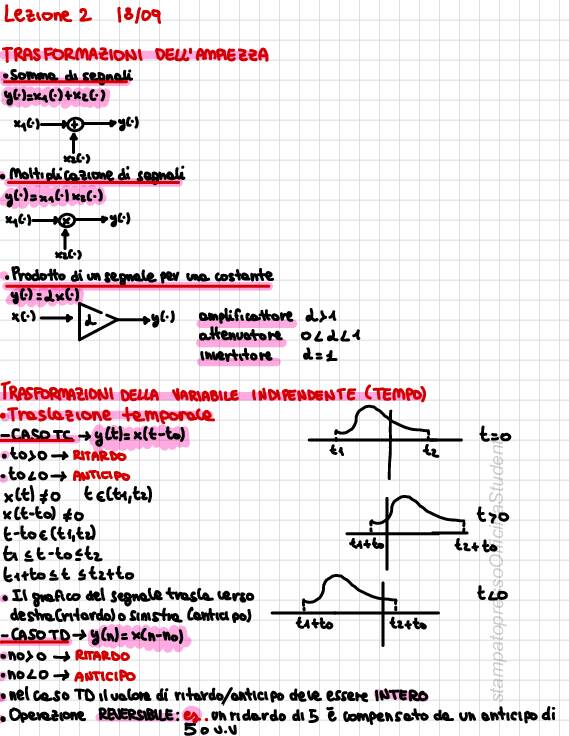 Lezione 2 18/09
TRASFORMAZIONI DELL'AMPIEZZA
• Somma di segnali
y(·)=x1(·)+x2(·)
x1(·) + y(·)
x2(·)
• Moltiplicazione di segnali
y(·)=x1(·)x2(·)
x1(·) x y(·)
x2(·)
• Prodotto di un segnale per una costante
y(·)=αx(·)
x(·) α y(·)
amplificattore α>1
attenuatore 0<α<1
invertitore α=1
TRASFORMAZIONI DELLA VARIABILE INDIPENDENTE (TEMPO)
• Traslazione temporale
- CASO TC → y(t)=x(t-t0)
• t0>0 → RITARDO
• t0<0 → ANTICIPO
x(t)≠0 t∈(t1,t2)
x(t-t0)≠0
t-t0∈(t1,t2)
t1≤t-t0≤t2
t1+t0≤t≤t2+t0
• Il grafico del segnale trasla verso
destra(ritardo) o sinistra (anticipo)
t1 t2 t=0
t1+t0 t2+t0 t>0
t1+t0 t2+t0 t<0
- CASO TD → y(n)=x(n-n0)
• n0>0 → RITARDO
• n0<0 → ANTICIPO
• nel caso TD il valore di ritardo/anticipo deve essere INTERO
• Operazione REVERSIBILE: es. un ridardo di 5 è compensato da un anticipo di
5 o v.v
stampatopressoOfficinaStudenti